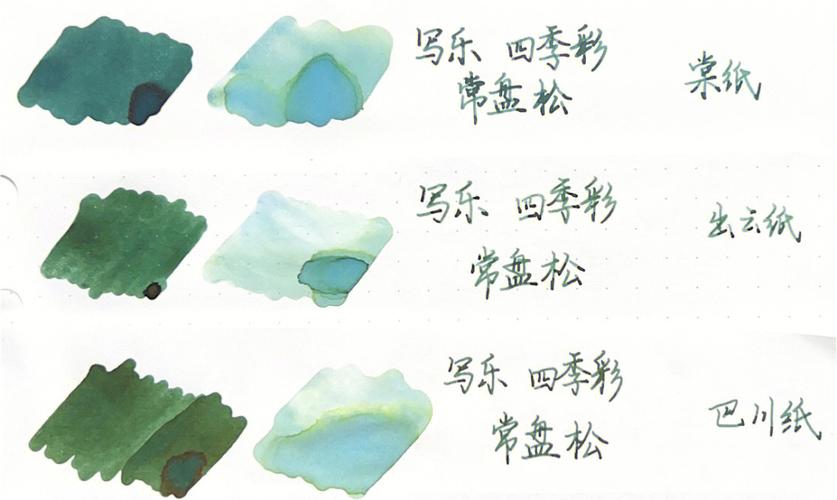 写乐 四季彩
常盘松
棠纸
写乐 四季彩
常盘松
出云纸
写乐 四季彩
常盘松
巴川纸